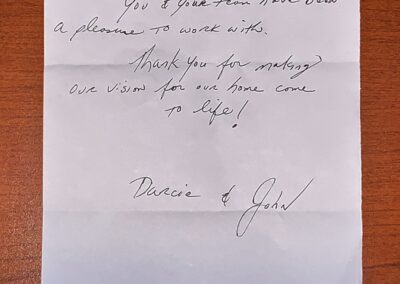 You & your team have been
a pleasure to work with.
Thank you for making
our vision for our home come
to life!
Darcie & John